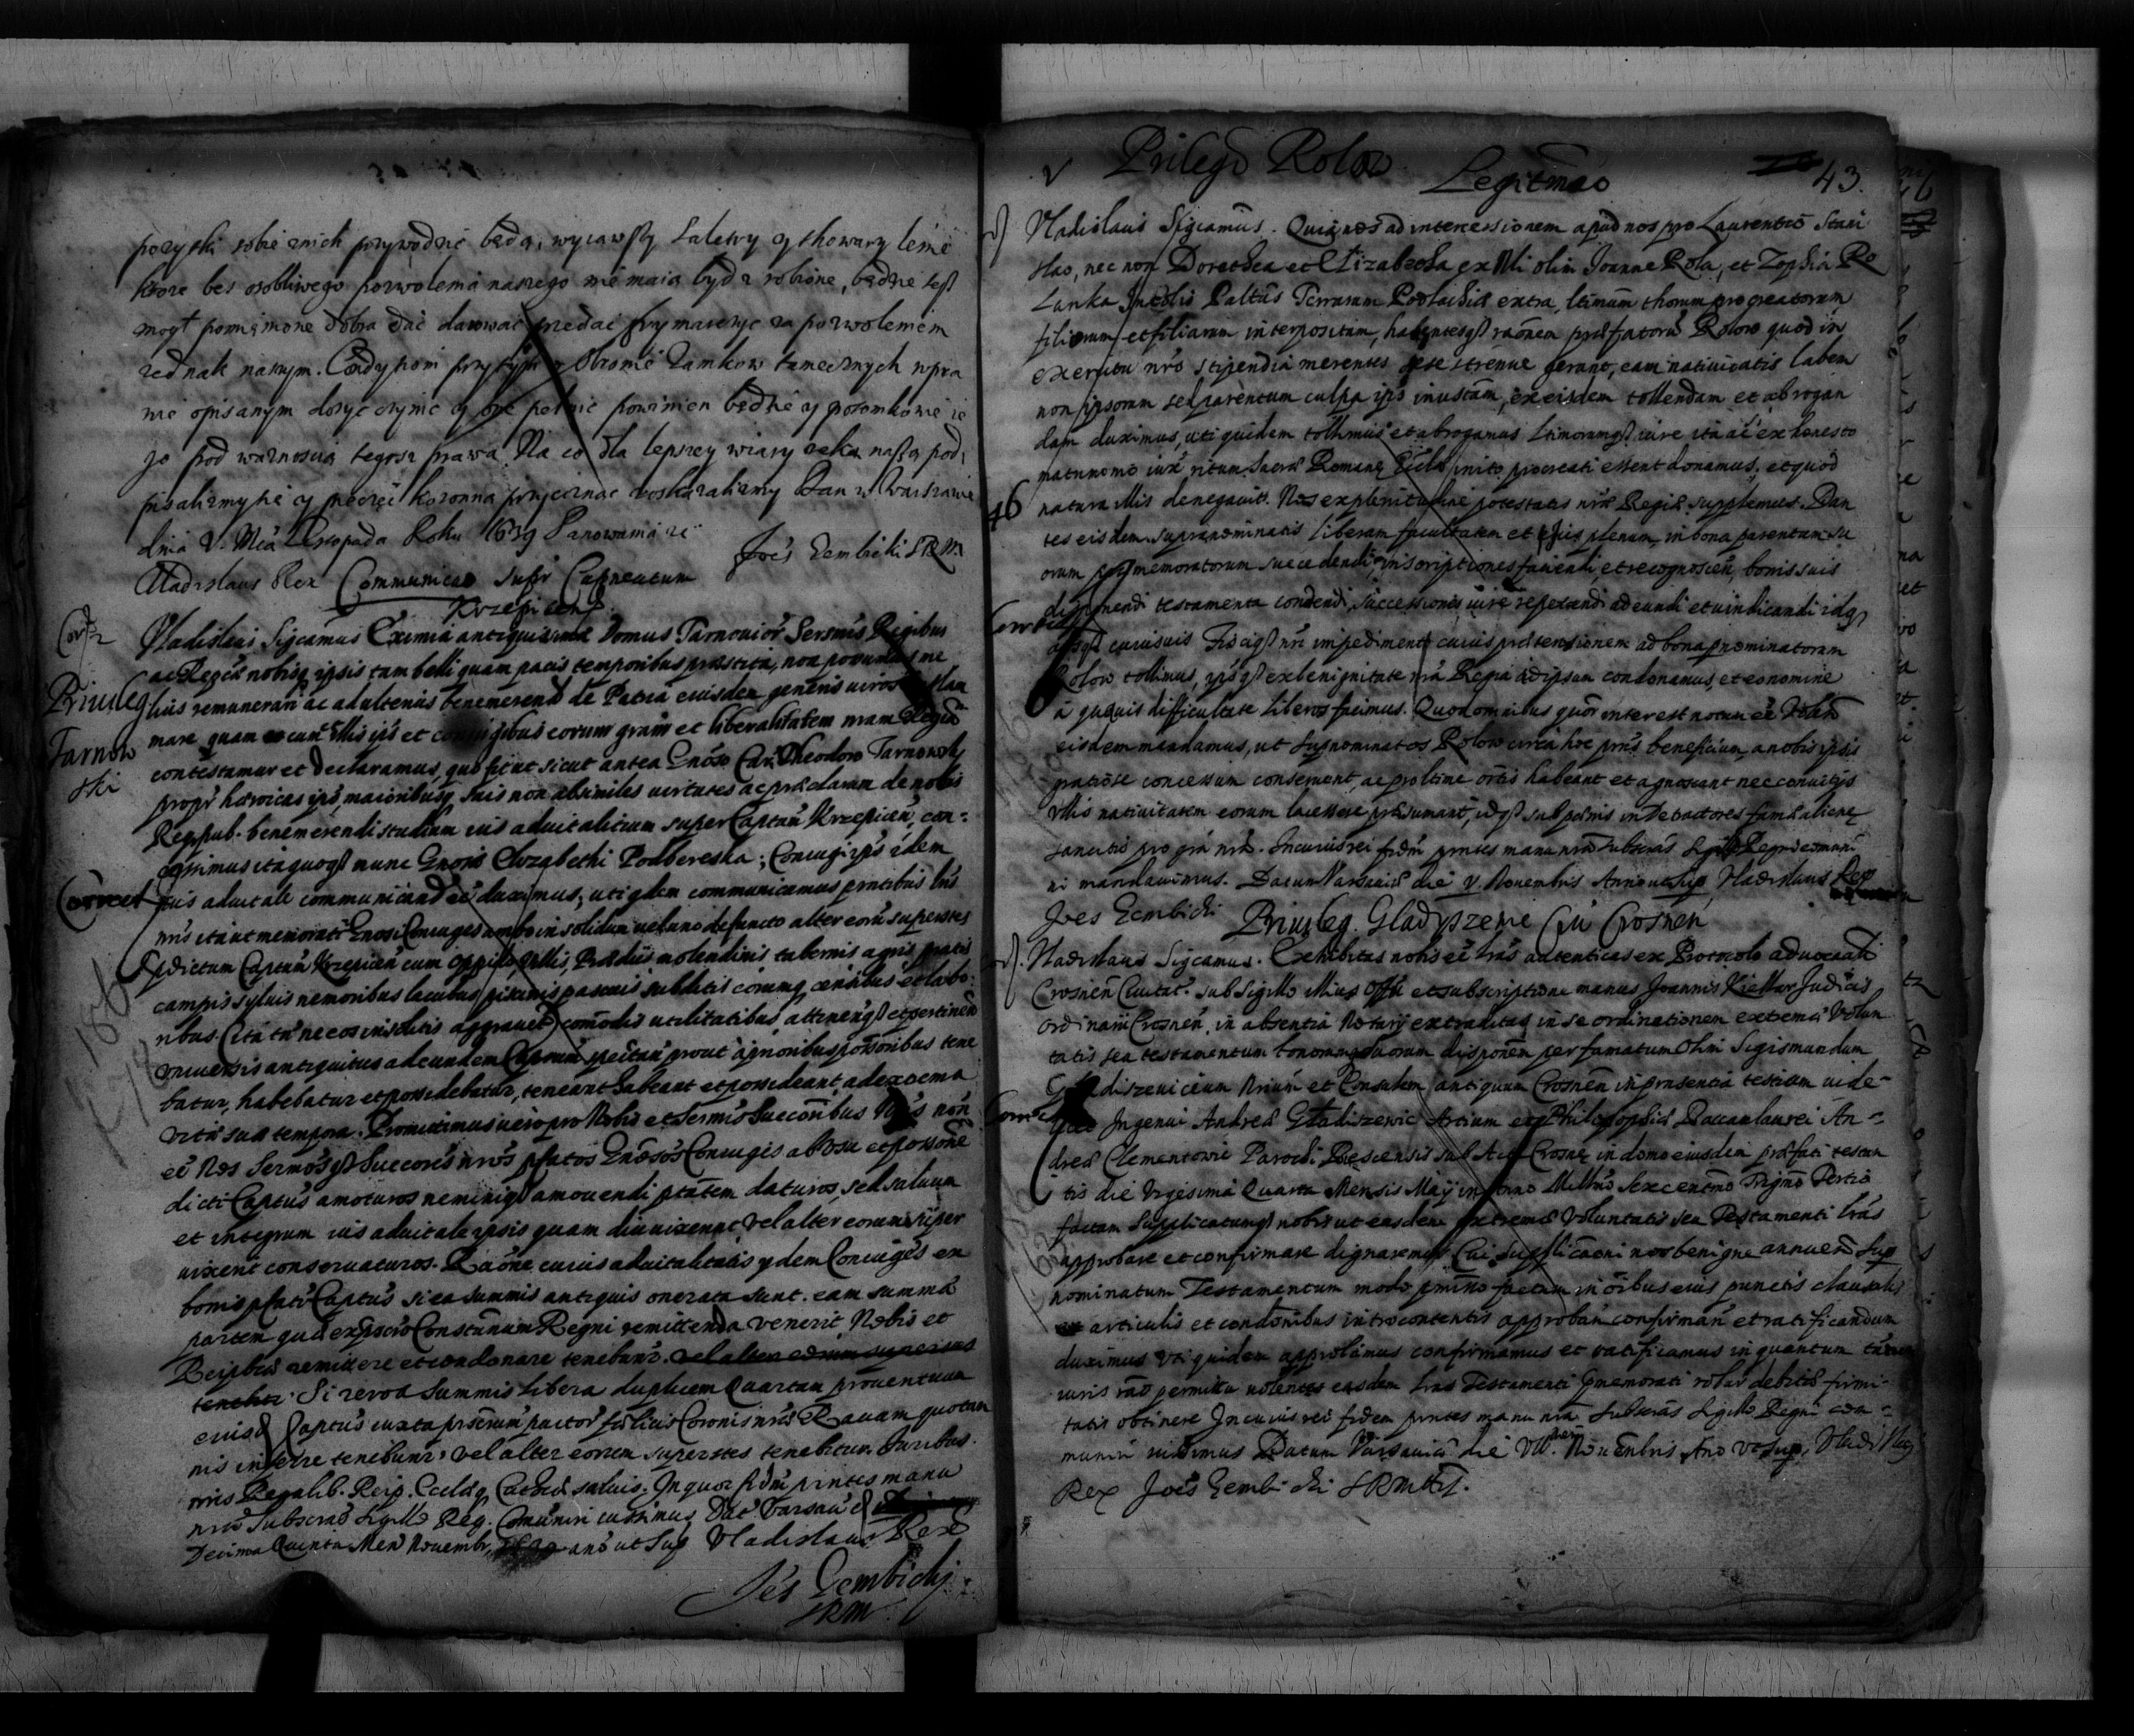 pożytki sobie z nich przywodzić będą, wyiąwszy Saletry y thowary leśne
ktore bez osobliwego pozwolenia naszego nie maią bydz robione, będzie też
mogł pomienione dobra dać darować przedać frymarczyć za pozwoleniem
iednak naszym. Condytiom przytym y Obronie Zamkow tamecznych w pra
wie opisanym dosyć czynić y one pełnić powinien będzie y potomkowie ie
go pod ważnoscią tegosz prawa. Na co dla lepszey wiary ręką naszą pod
pisalizmy się y pieczęć koronną przycisnąc roskazalizmy Dan w Warszawie
dnia V. Mca Listopada Roku 1639 Panowania
Vladislaus Rex Communicao supr Capneatum Joes Gembicki SRM
Krzepicen
Vladislaus Sigcamus Eximia antiquissimae Domus Tarnovior Sermis Regibus
ac Regis nobisq ipsis tam belli quam pacis temporibus praestita, non possumus me
lius remunerari ac adulterius benemerend de Patria eiusdem generis viros
mare quam eos cum illis ips et coniugibus eorum gram et liberalitatem nram Regia
contestamur et declaramus, quo fit ut sicut antea Gnoso Theodoro Tarnowsky
propr heroicas ips maioribusq suis non absimiles virtutes ac praeclaram de nobis
Reqpub. benemerendi studium ius aduitalitium super Captum Krzepicen, con-
cessimus ita quoq nunc Gnosa Elizabethi Podbereska; Coniugi ips idem
ius aduitale communicand ee duximus, uti qdem communicamus pntibus lris
nris ita ut memorati Gnosi Coniuges ambo in solidum uel uno defuncto alter eoru superstes
pdictum Captum Krzepicen cum oppido, Villis, Praediis molendinis tabernis agris pratis
campis syluis nemoribus lacubus piscinis pascuis subditis eorumq censibus et labo-
ribus (ita tn ne eos insolitis aggrauet) comodis utilitatibus attinen et pertinen
vniuersis antiquitus ad eundem Captum spectan prout a prioribus possoribus tene
batur, habebatur et possidebatur, teneant habeant et possideant ad extrema
vitae suae tempora. Promittimus uero pro Nobis et Sermis Succoribus Nris non
ee Nos Sermosq Succores nros pfatos Gnosos Coniuges ab Vsu et possone
dicti Captus amoturos neminiq amouendi ptatem daturos, sed saluum
et integrum ius aduitale ipsis quam diu uixerint, vel alter eorum super
uixerit conseruaturos. Raone cuius aduitalitatis ydem Coniuges ex
bonis pfati Captus si ea summis antiquis onerata sunt. eam summa
partem quae ex pscto Constonum Regni remittenda venerit, Nobis et
Reipbcae remittere et condonare tenebunt. vel alter eorum superstes
tenebit. Si vero a Summis libera duplicem Quartam prouentuum
eiusd Captus iuxta pscrum pactor felicis Coronis nrae Rauam quotan
nis inferre tenebunt, vel alter eorum superstes tenebitur. Juribus
nris Regalib. Reip. Ecclq Cathol saluis. In quor fidm pntes manu
nra Subscras Sigillo Reg. Comuniri iussimus Dat Varsau d
Decima Quinta Men Nouembr, ano ut Sup Vladislaus Rex
Joes Gembicky
SRM
Corr
Priuileg
Tarnow
ski
Correct
43.
Priuilegd Rolow
Legitmao
Vladislaus Sigcamus. Quia nos ad intercessionem apud nos pro Laurentio Stani
slao, nec non Dorothea et Elizabetha ex Nli olim Joanne Rola, et Zophia Ro
lanka Incolis Paltus Terrarum Podlachiae extra ltimum thorum progreatorum
filiorum et filiarum interpositam, habentesq raonem praefatoru Rolow quod in
exercitu nro stipendia merentes sese strenue gerant, eam natiuitatis labem
non ipsorum sed parentum culpa ips inustam, ex eisdem tollendam et abrogan
dam duximus, uti quidem tollimus et abrogamus ltimorumq iure ita ac ex honesto
matrimonio iux ritum Sacrae Romanae Eccla inito procreati essent donamus, et quod
natura illis denegauit Nos ex plenitudine potestatis nrae Regiae supplemus. Dan
tes eisdem supranominatis liberam facultatem et plenam, in bona parentum su
orum memoratorum succedendi, inscriptiones faciendi, et recognoscen, bonis suis
disponendi testamenta condendi, successionis iure repetendi adeundi et uindicandi idq
absq cuiusuis Fisciq nri impedimento, cuius praetensionem ad bona pnominatorum
Rolow tollimus, ipsq ex benignitate nra Regia id ipsum condonamus, et eo nomine
a quauis difficultate liberos facimus. Quod omnibus quor interest notum ee Volum
eisdem mandamus, ut supnominatos Rolow circa hoc pns beneficium a nobis ipsis
gratiose concessum conseruent, ac pro ltime ortis habeant et agnoscant nec conuitijs
vllis natiuitatem eorum lacessere praesumant, idq sub poenis in detractores famae alienae
sancitis pro gra nra. In cuius rei fidm pntes manu nra Subscras Sigillo Regni comuni
ri mandauimus. Datum Varsauiae die V. Nouembris Anno ut sup, Vladislaus Rex
Joes Gembicki Priuileg. Gladyszewie Ciu Crosnen
Vladislaus Sigcamus. Exhibitas nobis ee lras autenticas ex Protocolo aduocati
Crosnen Ciuitat. sub Sigillo illius Offii et subscriptione manus Joannis Kiellar Judicis
ordinarii Crosnen, in absentia Notarij extraditas in se ordinationem extremae Volun
tatis seu testamentum bonorumq suorum disponem per famatum Olim Sigismundum
Gladiszeuicium Nrium et Consulem antiquum Crosnen in praesentia testium uide-
licet Ingenui Andreae Gladiszewic Artium et Philosophiae Baccalaurei An-
dreae Clementowic Parochi sub Crosnae in domo eiusdem praefati testan
tis die Vigesima Quarta Mensis Maij in Anno Millmo Sexcentmo Trigmo Tertio
factam Supplicatumq nobis ut easdem extremae Voluntatis seu Testamenti lras
approbare et confirmare dignaremur Cui supplicaoni nos benigne annuen Sup
nominatum Testamentum modo pmisso factum in oibus eius punctis clausulis
et articulis et condonibus introcontentis approban confirman et ratificandum
duximus vti quidem approbamus confirmamus et ratificamus in quantum tamen
iuris rao permittit uolentes easdem lras Testamenti pmemorati robur debitae firmi-
tatis obtinere In cuius rei fidem pntes manu nra Subscras Sigillo Regni com-
muniri iussimus Datum Varsauiae die VII. Nouembris Ano vt sup, Vladislaus
Rex Joes Gembicki SRM
46